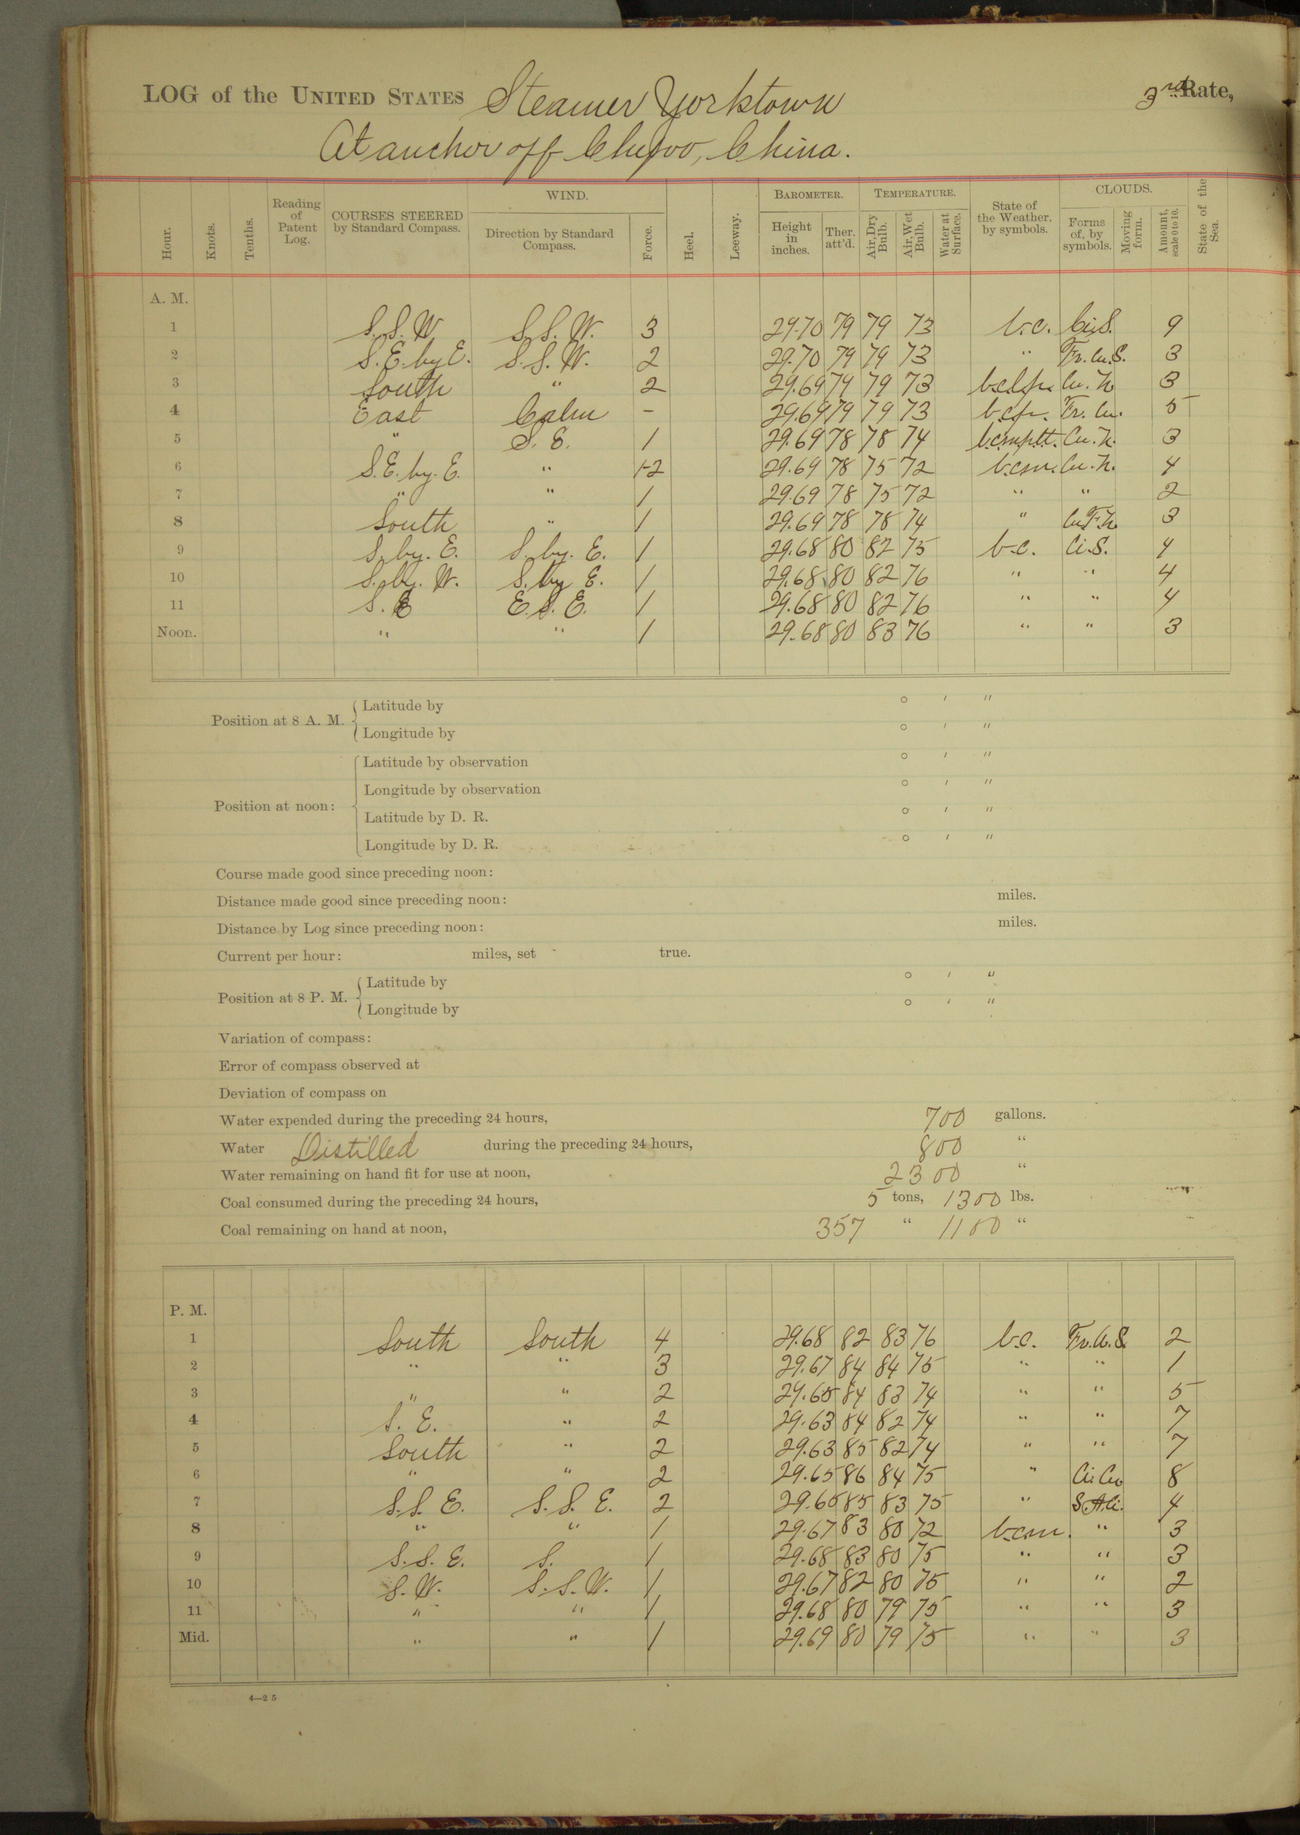 LOG of the UNITED STATES Steamer Yorktown 3rd Rate,
At anchor off Chefoo, China.
Hour. Knots. Tenths. Reading of Patent Log. COURSES STEERED by Standard Compass. WIND. Direction by Standard Compass. Force. Heel. Leeway. BAROMETER. Height in inches. Ther. att'd. TEMPERATURE. Air, Dry Bulb. Air, Wet Bulb. Water at Surface. State of the Weather, by symbols. CLOUDS. Forms of, by symbols. Moving form. Amount, scale 0 to 10. State of the Sea.
A. M.
1 S.S.W S.S.W. 3 29.70 79 79 73 b.c. Ci.S. 9
2 S.E. by E. S.S.W. 2 29.70 79 79 73 " Fr.Cu.S. 3
3 South " 2 29.69 79 79 73 Cu. N. 3
4 East Calm - 29.69 79 79 73 Fr. Cu. 5
5 " S.E. 1 29.69 78 78 74 Cu. N. 3
6 S.E. by. E. " 1-2 29.69 78 75 72 b.c.m. Cu. N. 4
7 " " 1 29.69 78 75 72 " " 2
8 South " 1 29.69 78 78 74 " 3
9 S. by. E. S. by. E. 1 29.68 80 82 75 b.c. Ci.S. 4
10 S. by. W. S. by E. 1 29.68 80 82 76 " " 4
11 S.E E.S.E. 1 29.68 80 82 76 " " 4
Noon. " " 1 29.68 80 83 76 " " 3
Position at 8 A. M. Latitude by ° ' "
Longitude by ° ' "
Position at noon: Latitude by observation ° ' "
Longitude by observation ° ' "
Latitude by D. R. ° ' "
Longitude by D. R. ° ' "
Course made good since preceding noon:
Distance made good since preceding noon: miles.
Distance by Log since preceding noon: miles.
Current per hour: miles, set true.
Position at 8 P. M. Latitude by ° ' "
Longitude by ° ' "
Variation of compass:
Error of compass observed at
Deviation of compass on
Water expended during the preceding 24 hours, 700 gallons.
Water Distilled during the preceding 24 hours, 800 "
Water remaining on hand fit for use at noon, 2300 "
Coal consumed during the preceding 24 hours, 5 tons, 1300 lbs.
Coal remaining on hand at noon, 357 " 1100 "
P. M.
1 South South 4 29.68 82 83 76 b.c. Fr.Cu.S. 2
2 " " 3 29.67 84 84 75 " " 1
3 " " 2 29.65 84 83 74 " " 5
4 S. E. " 2 29.63 84 82 74 " " 7
5 South " 2 29.63 85 82 74 " " 7
6 " " 2 29.65 86 84 75 " Ci.Cu 8
7 S.S.E. S.S.E. 2 29.65 85 83 75 " 4
8 " " 1 29.67 83 80 72 b.c.m. " 3
9 S.S.E. S. 1 29.68 83 80 75 " " 3
10 S.W. S.S.W. 1 29.67 82 80 75 " " 2
11 " " 1 29.68 80 79 75 " " 3
Mid. " " 1 29.69 80 79 75 " " 3
4—25